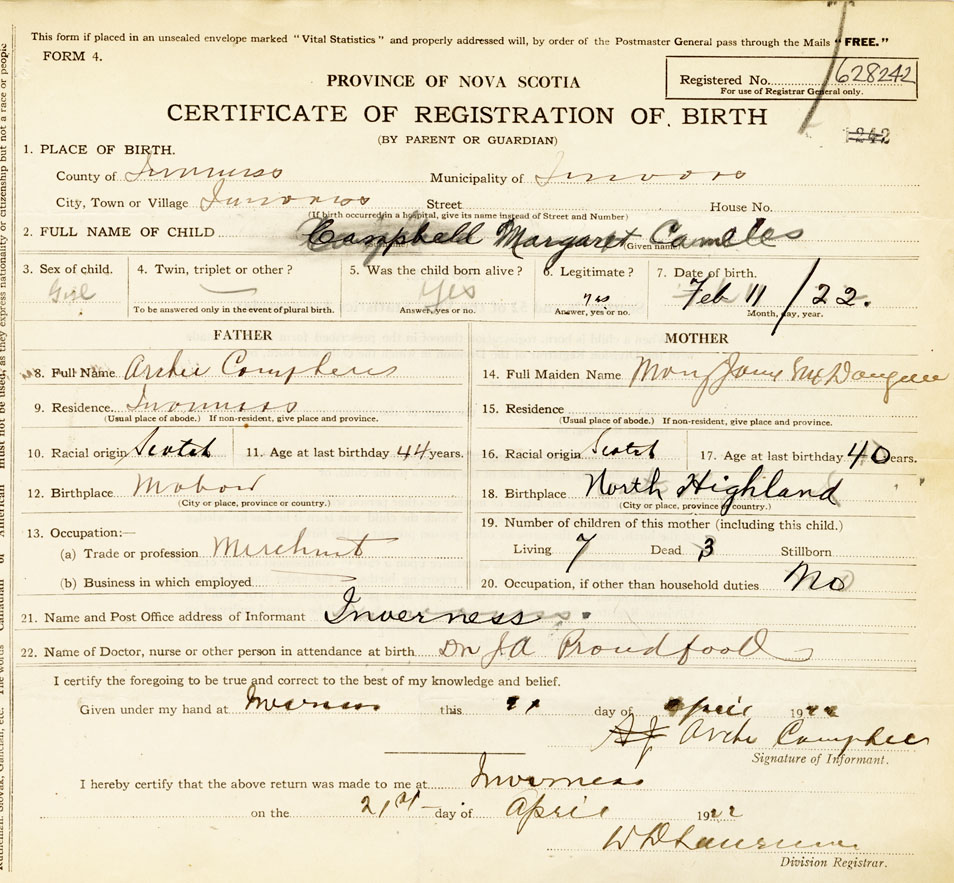 This form if placed in an unsealed envelope marked "Vital Statistics" and properly addressed will, by order of the Postmaster General pass through the Mails "FREE."
FORM 4.
PROVINCE OF NOVA SCOTIA
Registered No. 628242
For use of Registrar General only.
CERTIFICATE OF REGISTRATION OF BIRTH
(BY PARENT OR GUARDIAN)
1242
1. PLACE OF BIRTH.
County of Inverness Municipality of Inverness
City, Town or Village Inverness Street House No.
(If birth occurred in a hospital, give its name instead of Street and Number)
2. FULL NAME OF CHILD Campbell Margaret
(Given name)
3. Sex of child. 4. Twin, triplet or other? 5. Was the child born alive? 6. Legitimate? 7. Date of birth.
Girl — Yes yes Feb 11/22.
To be answered only in the event of plural birth. Answer, yes or no. Answer, yes or no. Month, day, year.
FATHER MOTHER
8. Full Name Archie 14. Full Maiden Name Mary Jane
9. Residence. Inverness 15. Residence
(Usual place of abode.) If non-resident, give place and province. (Usual place of abode.) If non-resident, give place and province.
10. Racial origin Scotch 11. Age at last birthday 44 years. 16. Racial origin Scotch 17. Age at last birthday 40 years.
12. Birthplace 18. Birthplace North Highland
(City or place, province or country.) (City or place, province or country.)
13. Occupation:— 19. Number of children of this mother (including this child.)
(a) Trade or profession Merchant Living 7 Dead 3 Stillborn
(b) Business in which employed 20. Occupation, if other than household duties No
21. Name and Post Office address of Informant Inverness
22. Name of Doctor, nurse or other person in attendance at birth. Dr J.A Proudfoot
I certify the foregoing to be true and correct to the best of my knowledge and belief.
Given under my hand at Inverness this 21 day of April 1922
Archie
Signature of Informant.
I hereby certify that the above return was made to me at Inverness
on the 21st day of April 1922
Division Registrar.